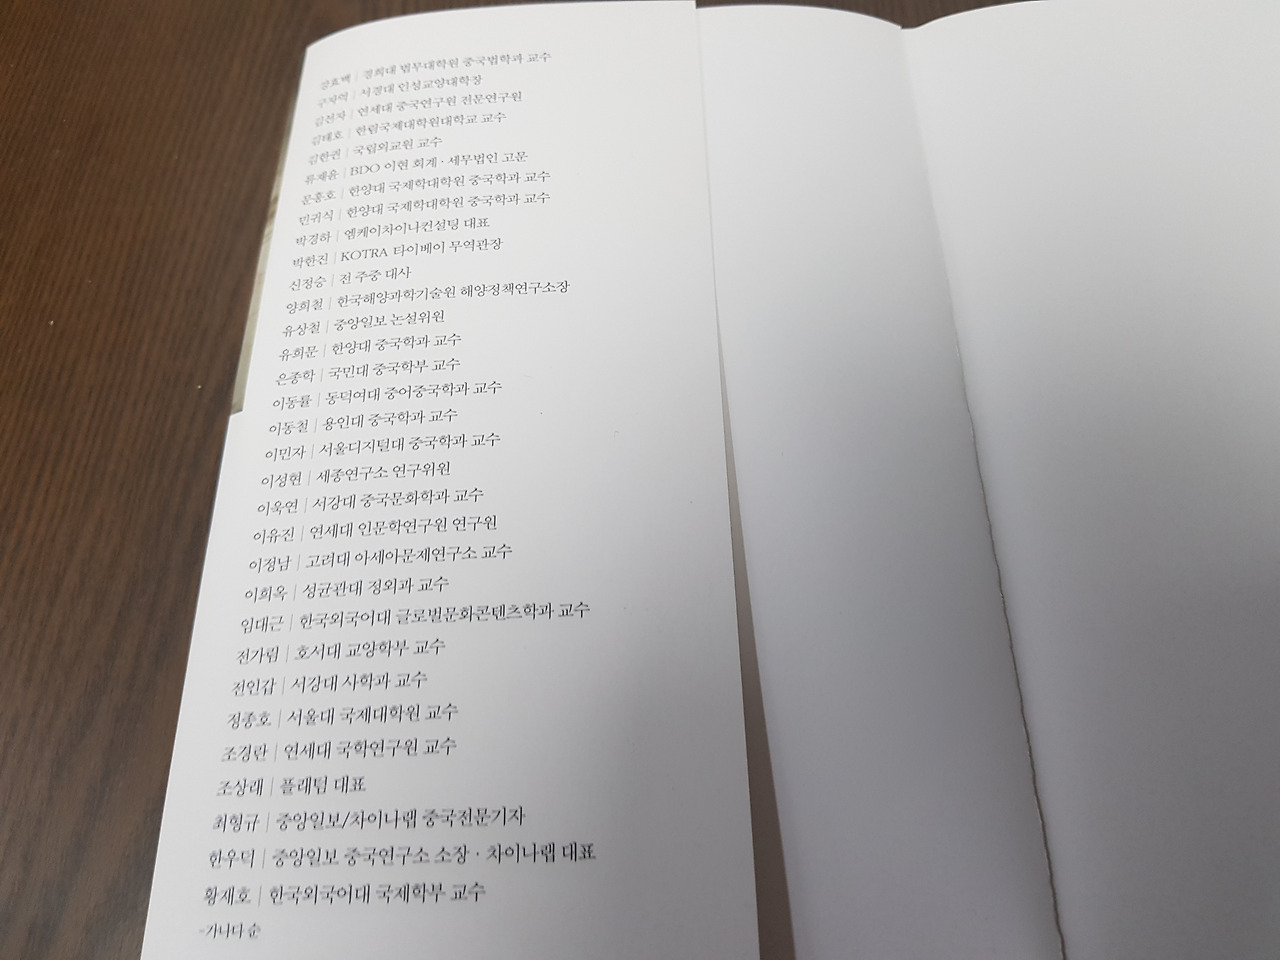 강효백 | 경희대 법무대학원 중국법학과 교수
구자억 | 서경대 인성교양대학장
김선자 | 연세대 중국연구원 전문연구원
김태호 | 한림국제대학원대학교 교수
김한권 | 국립외교원 교수
류재윤 | BDO 이현 회계·세무법인 고문
문흥호 | 한양대 국제학대학원 중국학과 교수
민귀식 | 한양대 국제학대학원 중국학과 교수
박경하 | 엠케이차이나컨설팅 대표
박한진 | KOTRA 타이베이 무역관장
신정승 | 전 주중 대사
양희철 | 한국해양과학기술원 해양정책연구소장
유상철 | 중앙일보 논설위원
유희문 | 한양대 중국학과 교수
은종학 | 국민대 중국학부 교수
이동률 | 동덕여대 중어중국학과 교수
이동철 | 용인대 중국학과 교수
이민자 | 서울디지털대 중국학과 교수
이성현 | 세종연구소 연구위원
이욱연 | 서강대 중국문화학과 교수
이유진 | 연세대 인문학연구원 연구원
이정남 | 고려대 아세아문제연구소 교수
이희옥 | 성균관대 정외과 교수
임대근 | 한국외국어대 글로벌문화콘텐츠학과 교수
전가림 | 호서대 교양학부 교수
전인갑 | 서강대 사학과 교수
정종호 | 서울대 국제대학원 교수
조경란 | 연세대 국학연구원 교수
조상래 | 플래텀 대표
최형규 | 중앙일보/차이나랩 중국전문기자
한우덕 | 중앙일보 중국연구소 소장·차이나랩 대표
황재호 | 한국외국어대 국제학부 교수
-가나다 순